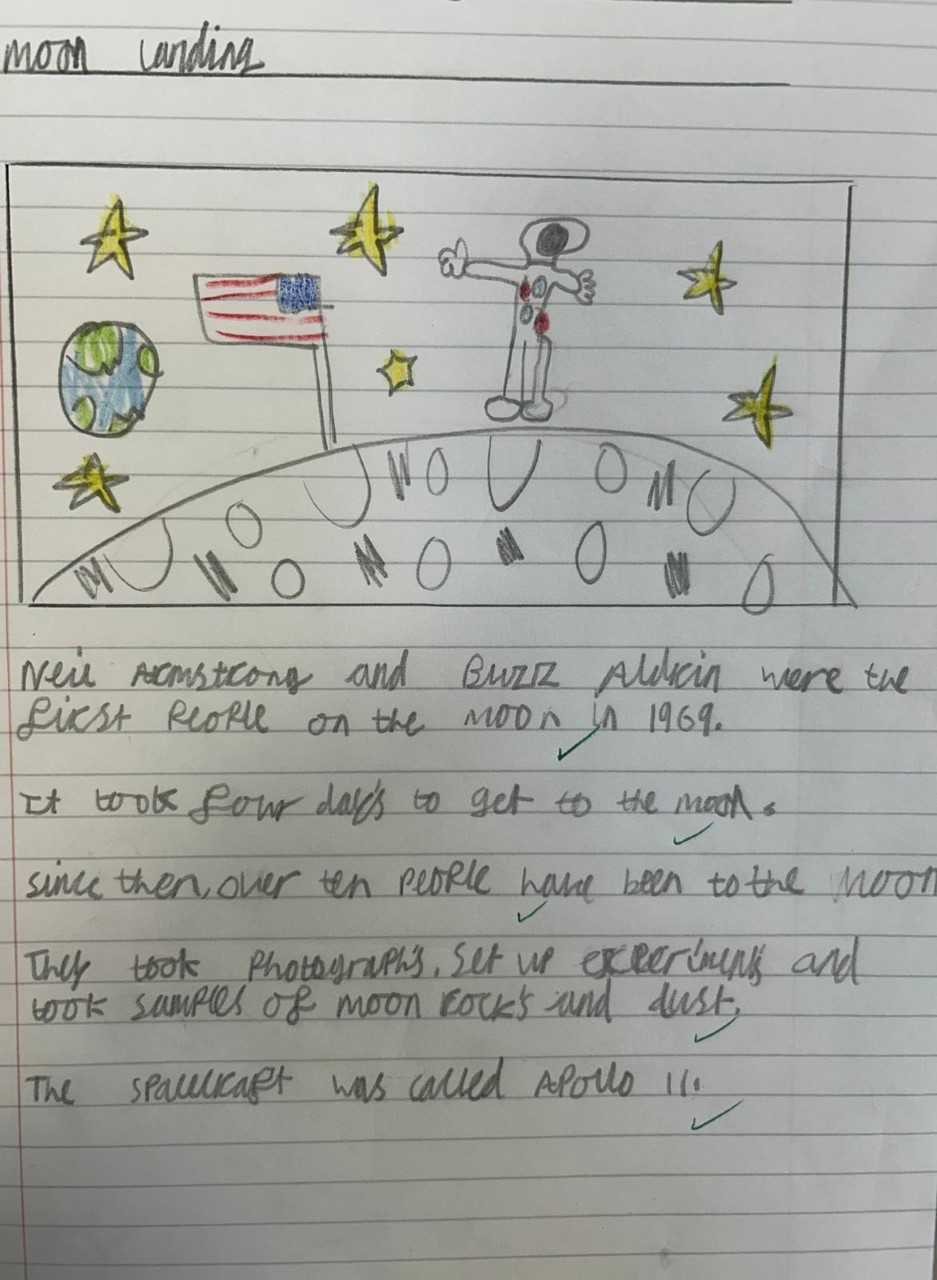 moon landing
Neil Armstrong and Buzz Aldrin were the
first People on the moon in 1969.
It took four days to get to the moon.
since then, over ten people have been to the moon
They took Photographs, set up experiments and
took samples of moon rocks and dust.
The spacecraft was called Apollo 11.